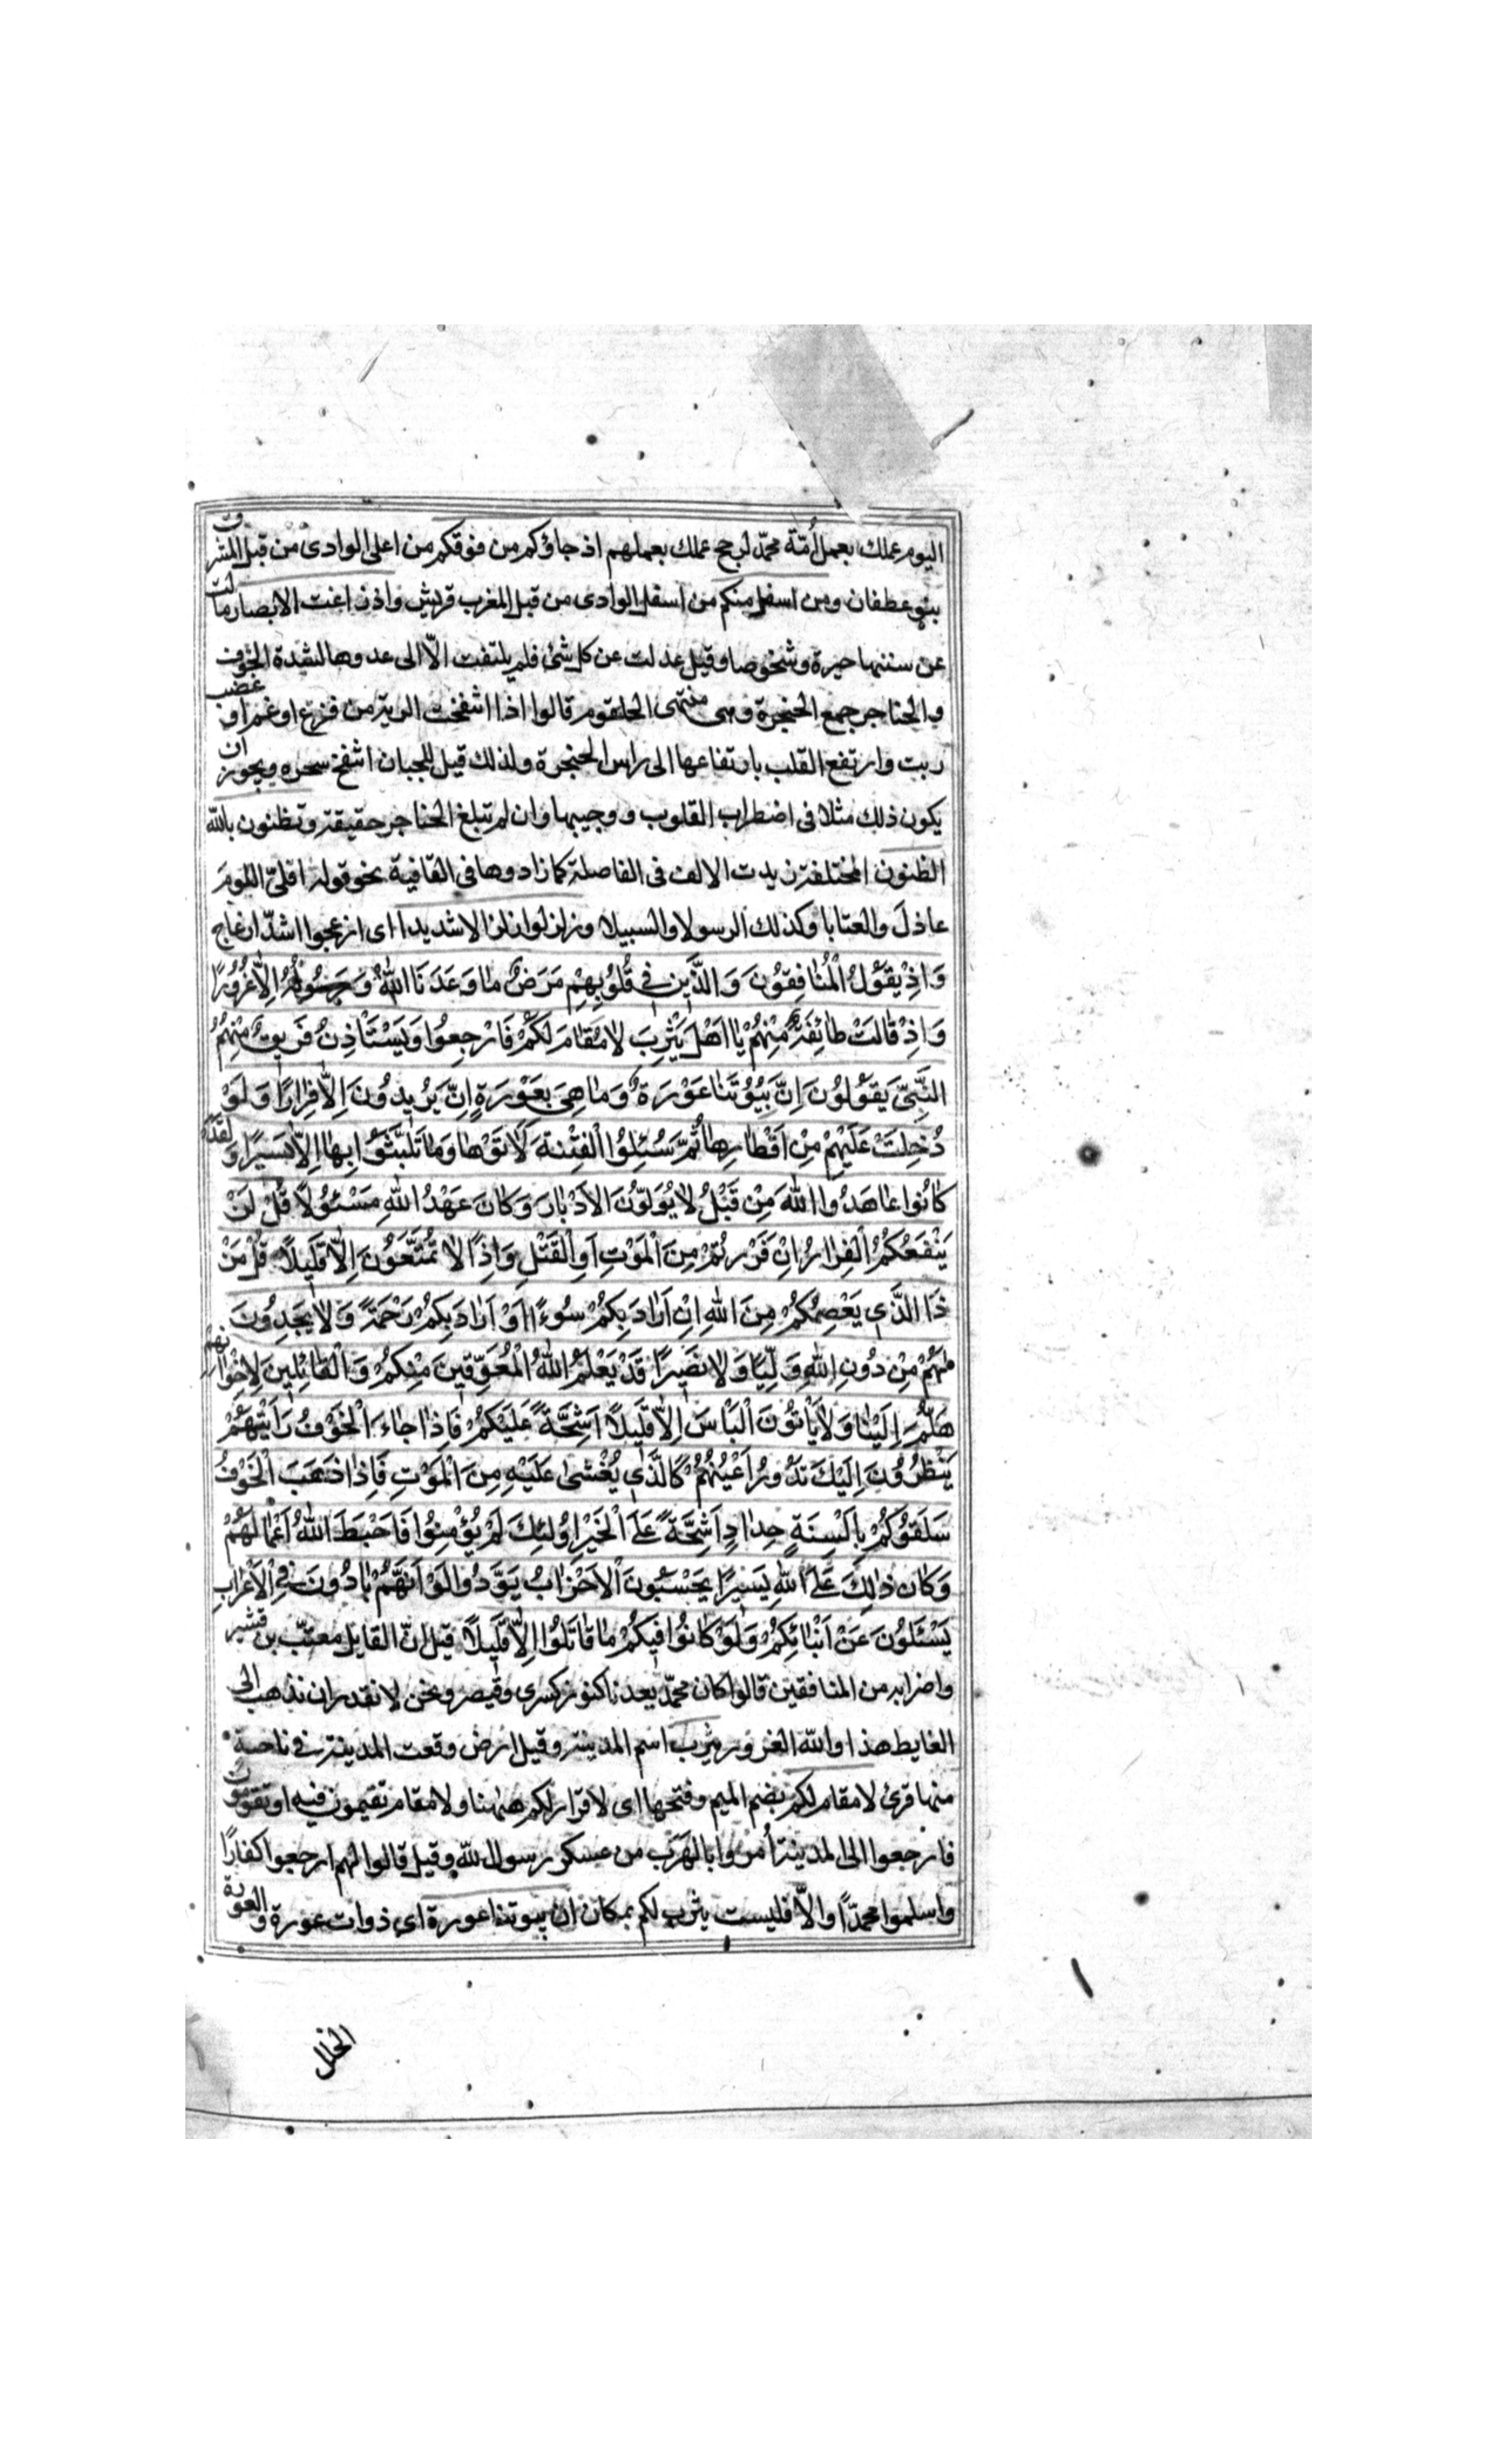 اليوم عملك بعمل أمّة محمّد لرجح عملك بعملهم اذ جاؤكم من فوقكم من اعلى الوادى من قبل المشرق
بنو غطفان ومن اسفل منكم من اسفل الوادى من قبل المغرب قريش واذ زاغت الابصار مالت
عن سننها حيرة وشخوصا وقيل عدلت عن كل شئ فلم يلتفت الّا الى عدوها لشدة الخوف
والحناجر جمع الحنجرة وهى منتهى الحلقوم قالوا اذا انتفخت الرية من فزع او غم او غضب
ربت وارتفع القلب بارتفاعها الى راس الحنجرة ولذلك قيل للجبان انتفخ سحره ويجوز ان
يكون ذلك مثلا فى اضطراب القلوب ووجيبها وان لم تبلغ الحناجر حقيقة وتظنون بالله
الظنون المختلفة زيدت الالف فى الفاصلة كما زادوها فى القافية نحو قوله اقلّى اللوم
عاذلَ والعتابا وكذلك الرسولا والسبيلا وزلزلوا زلزالا شديدا اى ازعجوا اشدّ ازعاج
وَاِذْ يَقُوْلُ الْمُنٰافِقُوْنَ وَالَّذِينَ فِى قُلُوْبِهِمْ مَرَضٌ مٰا وَعَدَنَا اللهُ وَرَسُولُهُ اِلَّا غُرُورًا
وَاِذْ قٰالَتْ طٰائِفَةٌ مِنْهُمْ يٰا اَهْلَ يَثْرِبَ لٰا مُقٰامَ لَكُمْ فَارْجِعُوا وَيَسْتَاْذِنُ فَرِيقٌ مِنْهُمُ
النَّبِىَّ يَقُوْلُوْنَ اِنَّ بُيُوْتَنٰا عَوْرَةٌ وَمٰا هِىَ بِعَوْرَةٍ اِنْ يُرِيدُوْنَ اِلَّا فِرٰارًا وَلَوْ
دُخِلَتْ عَلَيْهِمْ مِنْ اَقْطٰارِهٰا ثُمَّ سُئِلُوا الْفِتْنَةَ لَاٰتَوْهٰا وَمٰا تَلَبَّثُوْا بِهٰا اِلَّا يَسِيْرًا وَلَقَدْ
كٰانُوا عٰاهَدُوا اللهَ مِنْ قَبْلُ لٰا يُوَلُّوْنَ الْاَدْبٰارَ وَكٰانَ عَهْدُ اللهِ مَسْئُوْلًا قُلْ لَنْ
يَنْفَعَكُمُ الْفِرٰارُ اِنْ فَرَرْتُمْ مِنَ الْمَوْتِ اَوِ الْقَتْلِ وَاِذًا لٰا تُمَتَّعُوْنَ اِلَّا قَلِيلًا قُلْ مَنْ
ذَا الَّذِى يَعْصِمُكُمْ مِنَ اللهِ اِنْ اَرٰادَ بِكُمْ سُوْءًا اَوْ اَرٰادَ بِكُمْ رَحْمَةً وَلٰا يَجِدُوْنَ
لَهُمْ مِنْ دُوْنِ اللهِ وَلِيًّا وَلٰا نَصِيْرًا قَدْ يَعْلَمُ اللهُ الْمُعَوِّقِينَ مِنْكُمْ وَالْقٰائِلِينَ لِاِخْوٰانِهِمْ
هَلُمَّ اِلَيْنٰا وَلٰا يَاْتُوْنَ الْبَاْسَ اِلَّا قَلِيلًا اَشِحَّةً عَلَيْكُمْ فَاِذٰا جٰاءَ الْخَوْفُ رَاَيْتَهُمْ
يَنْظُرُوْنَ اِلَيْكَ تَدُوْرُ اَعْيُنُهُمْ كَالَّذِى يُغْشٰى عَلَيْهِ مِنَ الْمَوْتِ فَاِذٰا ذَهَبَ الْخَوْفُ
سَلَقُوْكُمْ بِاَلْسِنَةٍ حِدٰادٍ اَشِحَّةً عَلَى الْخَيْرِ اُولٰئِكَ لَمْ يُؤْمِنُوا فَاَحْبَطَ اللهُ اَعْمٰالَهُمْ
وَكٰانَ ذٰلِكَ عَلَى اللهِ يَسِيْرًا يَحْسَبُوْنَ الْاَحْزٰابُ يَوَدُّوا لَوْ اَنَّهُمْ بٰادُوْنَ فِى الْاَعْرٰابِ
يَسْئَلُوْنَ عَنْ اَنْبٰائِكُمْ وَلَوْ كٰانُوْا فِيكُمْ مٰا قٰاتَلُوا اِلَّا قَلِيلًا قيل انّ القايل معتّب بن قشير
واضرابه من المنافقين قالوا كان محمّد يعدنا كنوز كسرى وقيصر ونحن لا نقدر ان نذهب الى
الغايط هذا والله الغرور يثرب اسم المدينة وقيل ارض وقعت المدينة فى ناحية
منها قرئ لا مقام لكم بضم الميم وفتحها اى لا قرار لكم ههنا ولا مقام تقيمون فيه او تقومون
فارجعوا الى المدينة أمروا بالهَرَب من عسكر رسول الله وقيل قالوا لهم ارجعوا كفارًا
واسلموا محمّدًا والّا فليست يثرب لكم بمكان ان بيوتنا عورة اى ذوات عورة والعورة
الخلل